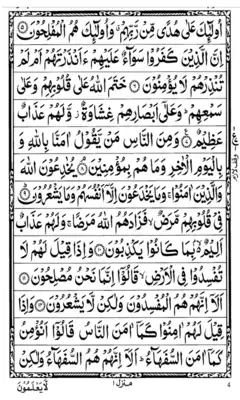 أُولَٰئِكَ عَلَىٰ هُدًى مِّن رَّبِّهِمْ ۖ وَأُولَٰئِكَ هُمُ الْمُفْلِحُونَ ۝٥
إِنَّ الَّذِينَ كَفَرُوا سَوَاءٌ عَلَيْهِمْ ءَأَنذَرْتَهُمْ أَمْ لَمْ
تُنذِرْهُمْ لَا يُؤْمِنُونَ ۝٦ خَتَمَ اللَّهُ عَلَىٰ قُلُوبِهِمْ وَعَلَىٰ
سَمْعِهِمْ ۖ وَعَلَىٰ أَبْصَارِهِمْ غِشَاوَةٌ ۖ وَلَهُمْ عَذَابٌ
عَظِيمٌ ۝٧ وَمِنَ النَّاسِ مَن يَقُولُ آمَنَّا بِاللَّهِ وَ
بِالْيَوْمِ الْآخِرِ وَمَا هُم بِمُؤْمِنِينَ ۝٨ يُخَادِعُونَ اللَّهَ
وَالَّذِينَ آمَنُوا ۚ وَمَا يَخْدَعُونَ إِلَّا أَنفُسَهُمْ وَمَا يَشْعُرُونَ ۝٩
فِي قُلُوبِهِم مَّرَضٌ ۙ فَزَادَهُمُ اللَّهُ مَرَضًا ۚ وَلَهُمْ عَذَابٌ
أَلِيمٌ ۙ بِمَا كَانُوا يَكْذِبُونَ ۝١٠ وَإِذَا قِيلَ لَهُمْ لَا
تُفْسِدُوا فِي الْأَرْضِ ۙ قَالُوا إِنَّمَا نَحْنُ مُصْلِحُونَ ۝١١
أَلَا إِنَّهُمْ هُمُ الْمُفْسِدُونَ وَلَٰكِن لَّا يَشْعُرُونَ ۝١٢ وَإِذَا
قِيلَ لَهُمْ آمِنُوا كَمَا آمَنَ النَّاسُ قَالُوا أَنُؤْمِنُ
كَمَا آمَنَ السُّفَهَاءُ ۗ أَلَا إِنَّهُمْ هُمُ السُّفَهَاءُ وَلَٰكِن
لَّا يَعْلَمُونَ
منزل ١
4